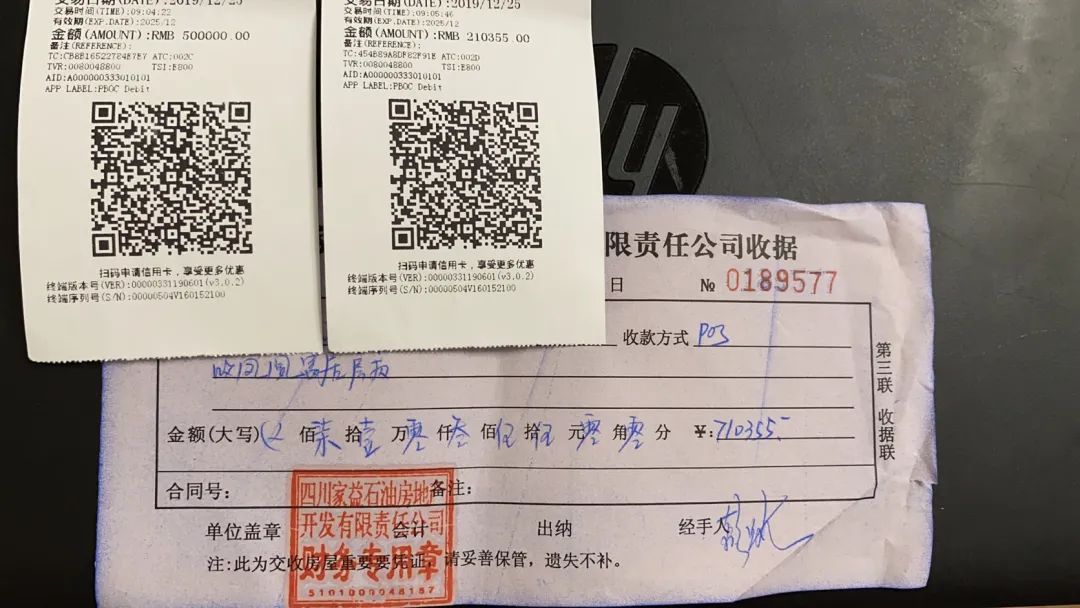 交易日期(DATE):2019/12/25
交易时间(TIME):09:04:22
有效期(EXP.DATE):2025/12
金额(AMOUNT):RMB 500000.00
备注(REFERENCE):
TC:CB8B16522784E7E7 ATC:002C
TVR:0080048800 TSI:E800
AID:A000000333010101
APP LABEL:PBOC Debit
扫码申请信用卡，享受更多优惠
终端版本号(VER):00000331190601(v3.0.2)
终端序列号(S/N):00000504V160152100
交易日期(DATE):2019/12/25
交易时间(TIME):09:05:46
有效期(EXP.DATE):2025/12
金额(AMOUNT):RMB 210355.00
备注(REFERENCE):
TC:454B89A8DF82F91E ATC:002D
TVR:0080048800 TSI:E800
AID:A000000333010101
APP LABEL:PBOC Debit
扫码申请信用卡，享受更多优惠
终端版本号(VER):00000331190601(v3.0.2)
终端序列号(S/N):00000504V160152100
限责任公司收据
日 № 0189577
收款方式 POS
金额(大写) 佰 柒 拾 壹 万 零 仟 叁 佰 伍 拾 伍 元 零 角 零 分 ¥:710355.-
合同号: 备注:
单位盖章 会计 出纳 经手人
注:此为交收房屋重要要凭证，请妥善保管，遗失不补。
第三联 收据联
四川家益石油房地
开发有限责任公司
财务专用章
5101000048187